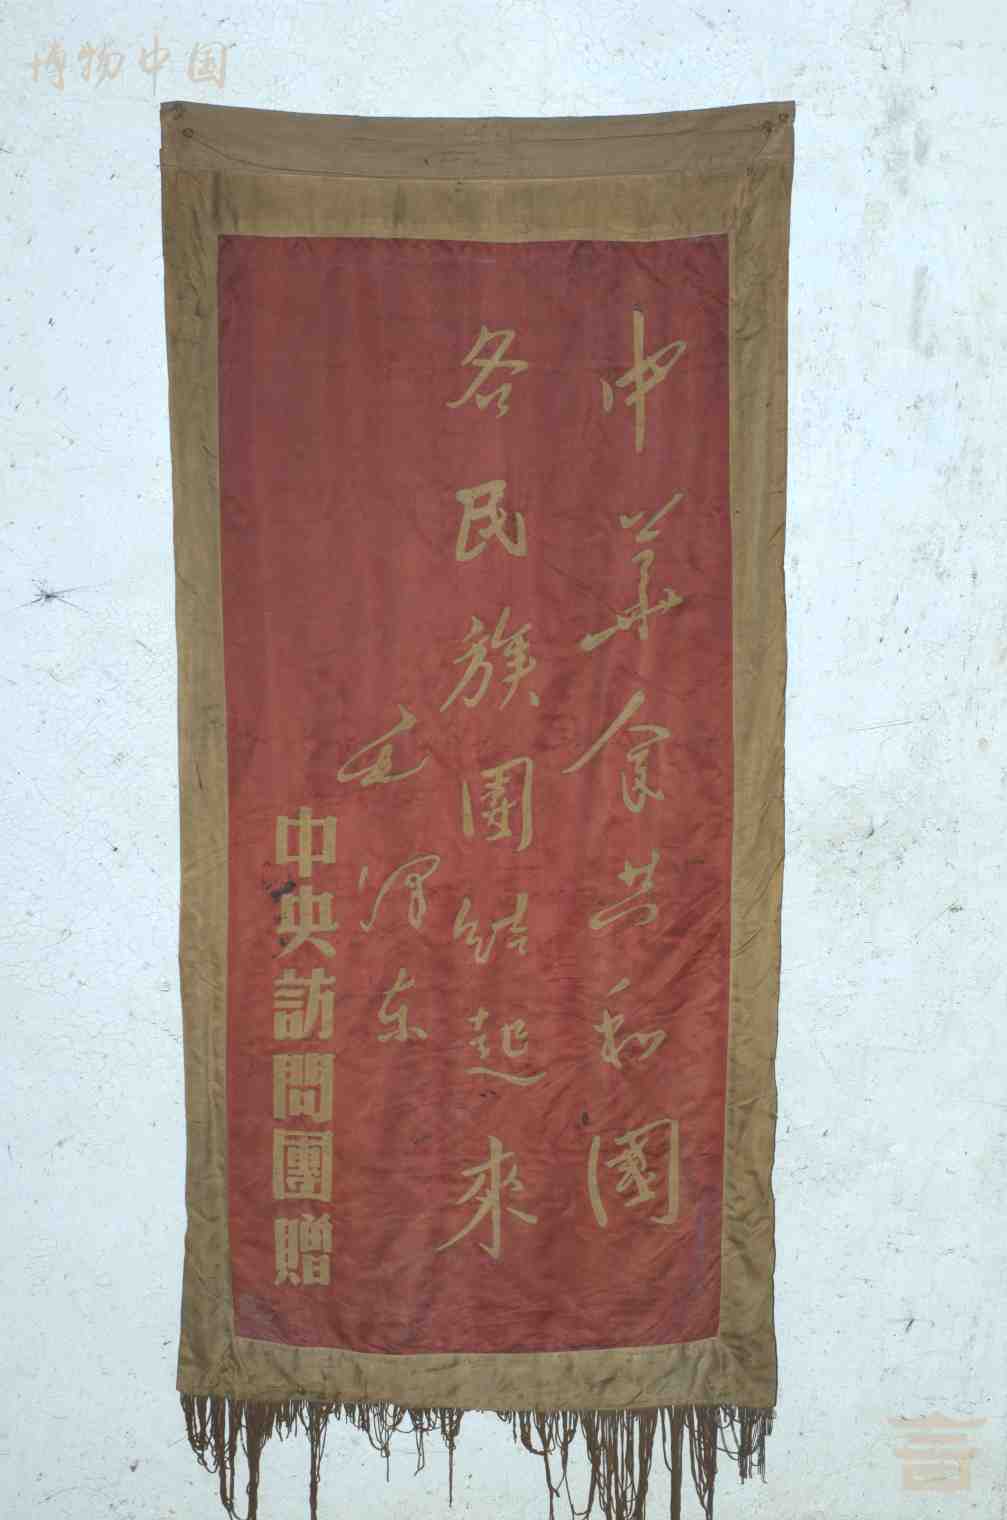 博物中国
中華人民共和國
各民族團結起來
毛澤東
中央訪問團贈